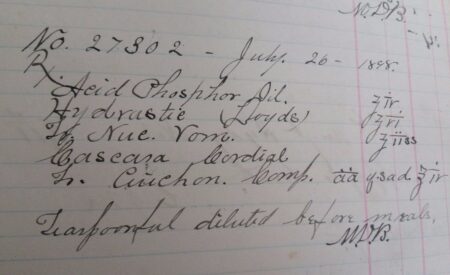 M.D.B.
No. 27302 - July. 26 - 1898.
Rx.
Acid Phosphor Dil. ʒiv
Hydrastic (Lloyds) ʒvi
Tr. Nuc. Vom. ʒiiss
Cascara Cordial
Tr. Cinchon. Comp. āā qsad ℥iv
Teaspoonful diluted before meals.
M.D.B.